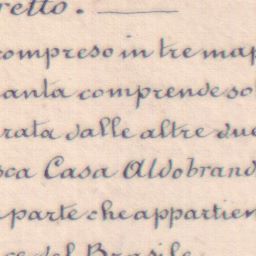 retto.
compreso in tre map
anta comprende so
rata dalle altre due
sca Casa Aldobrand
parte che appartien
del Brasile